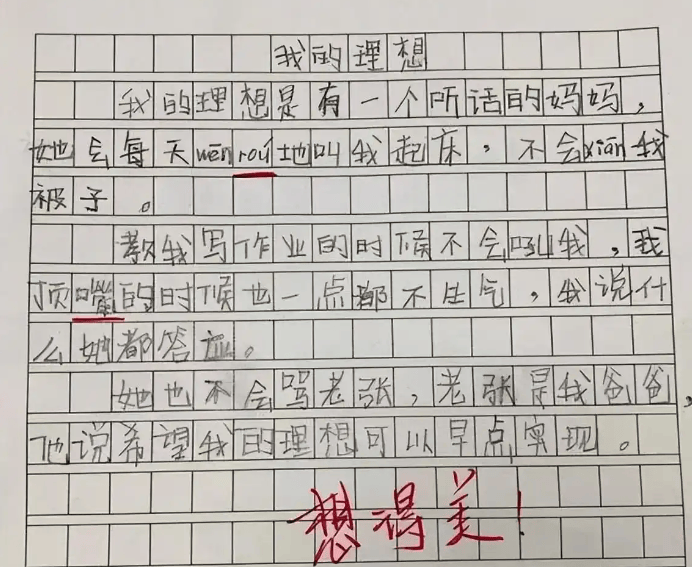 我的理想
我的理想是有一个听话的妈妈，
她会每天wēnroú地叫我起床，不会xiān我
被子。
教我写作业的时候不会吼我，我
顶嘴的时候也一点都不生气，我说什
么她都答应。
她也不会骂老张，老张是我爸爸，
他说希望我的理想可以早点实现。
想得美！